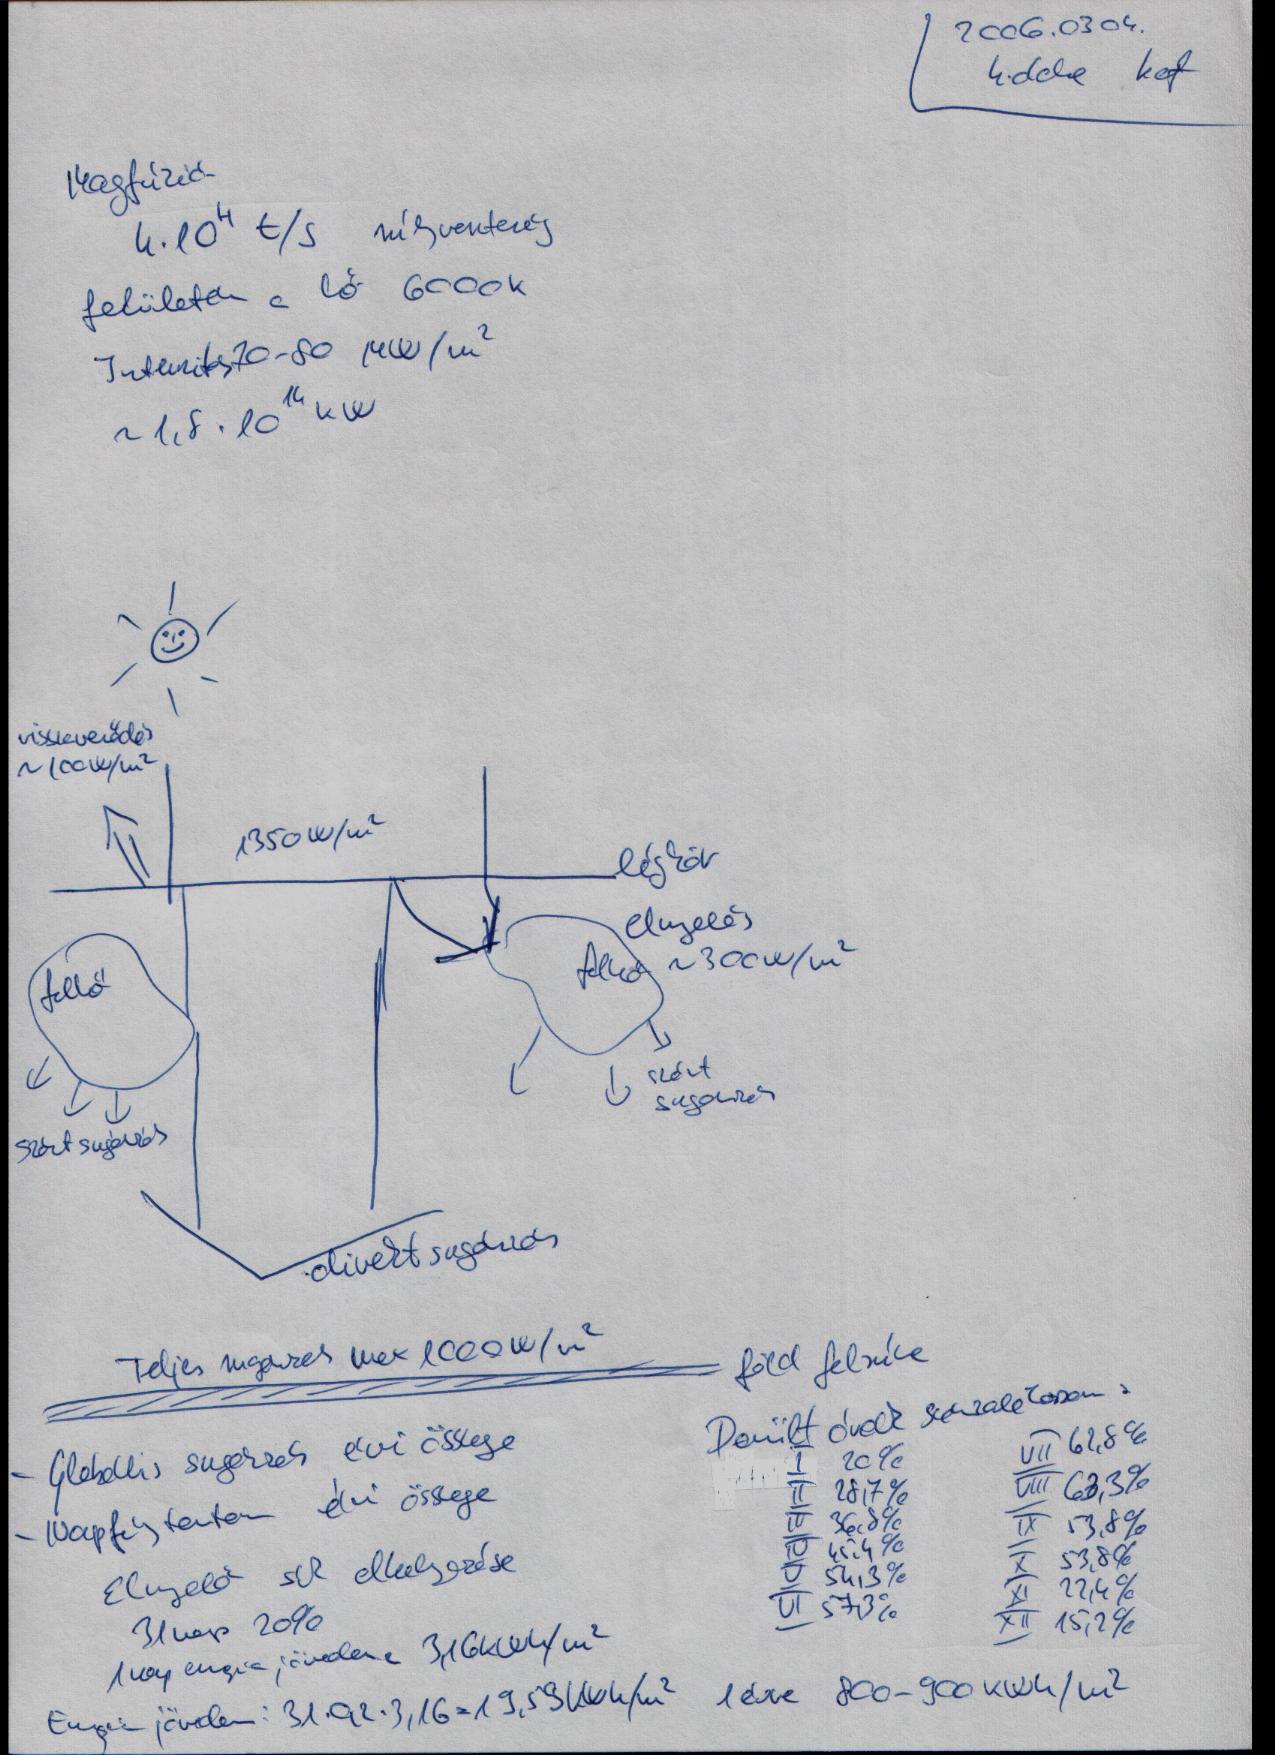 2006.03 04.
Magfúzió
4.10⁴ t/s
felületén a hő 6000K
Intenzitás 70-80 MW/m²
~1,8.10¹⁴ kW
visszaverődés
~100W/m²
1350W/m²
légkör
elnyelés
felhő ~300W/m²
felhő
szórt
sugárzás
szórt sugárzás
direkt sugárzás
Teljes sugárzás max 1000W/m²
föld felszíne
- Globális sugárzás évi összege
- Napfénytartam évi összege
Elnyelő sík elhelyezése
31 nap 20%
1 nap energia jövedelme 3,16kWh/m²
Energia jövedelem: 31.0,2.3,16=19,59kWh/m² 1 évre 800-900kWh/m²
Derült órák százalékosan:
I 20%
II 28,7%
III 36,8%
IV 45,4%
V 54,3%
VI 57,3%
VII 62,8%
VIII 63,3%
IX 53,8%
X 53,8%
XI 22,4%
XII 15,2%